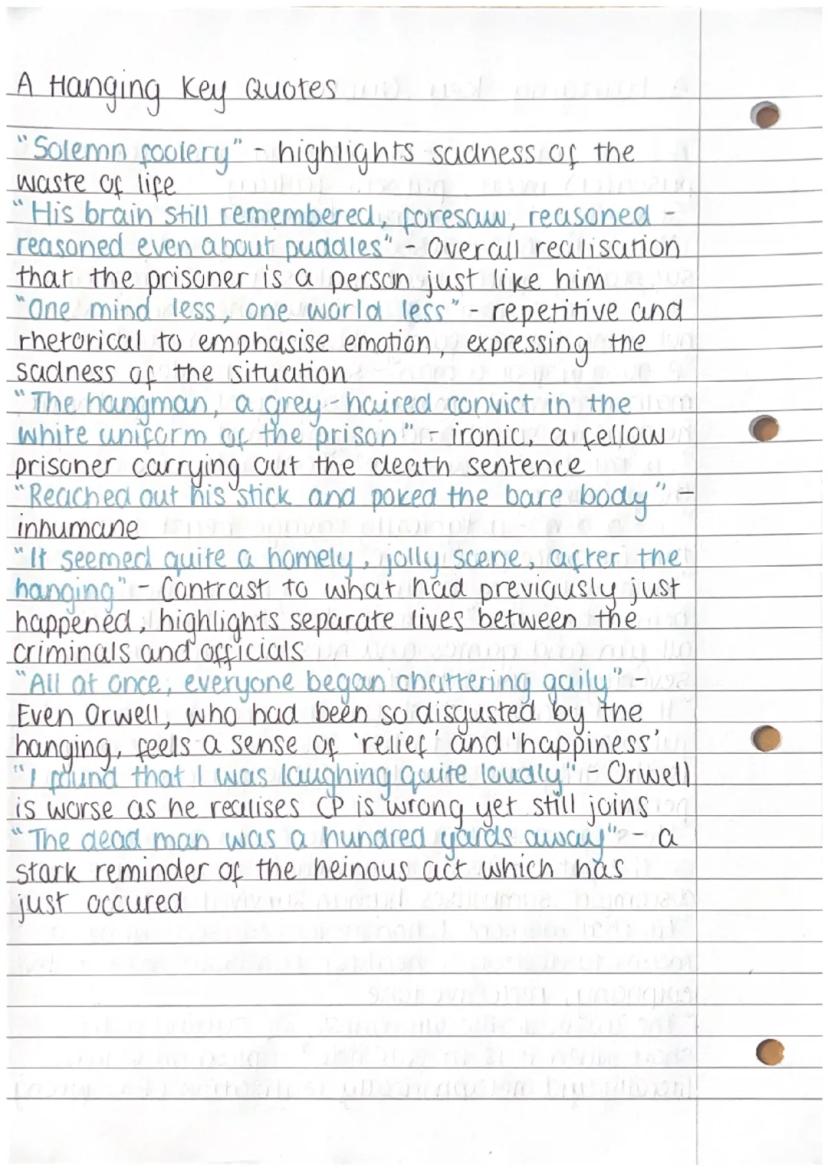 A Hanging Key Quotes
"Solemn foolery" - highlights sadness of the
waste of life
"His brain still remembered, foresaw, reasoned -
reasoned even about puddles" - Overall realisation
that the prisoner is a person just like him
"One mind less, one world less" - repetitive and
rhetorical to emphasise emotion, expressing the
sadness of the situation
"The hangman, a grey-haired convict in the
white uniform of the prison" - ironic, a fellow
prisoner carrying out the death sentence
"Reached out his stick and poked the bare body" -
inhumane
"It seemed quite a homely, jolly scene, after the
hanging" - Contrast to what had previously just
happened, highlights separate lives between the
criminals and officials
"All at once, everyone began chattering gaily" -
Even Orwell, who had been so disgusted by the
hanging, feels a sense of 'relief' and 'happiness'
"I found that I was laughing quite loudly" - Orwell
is worse as he realises CP is wrong yet still joins
"The dead man was a hundred yards away" - a
stark reminder of the heinous act which has
just occured